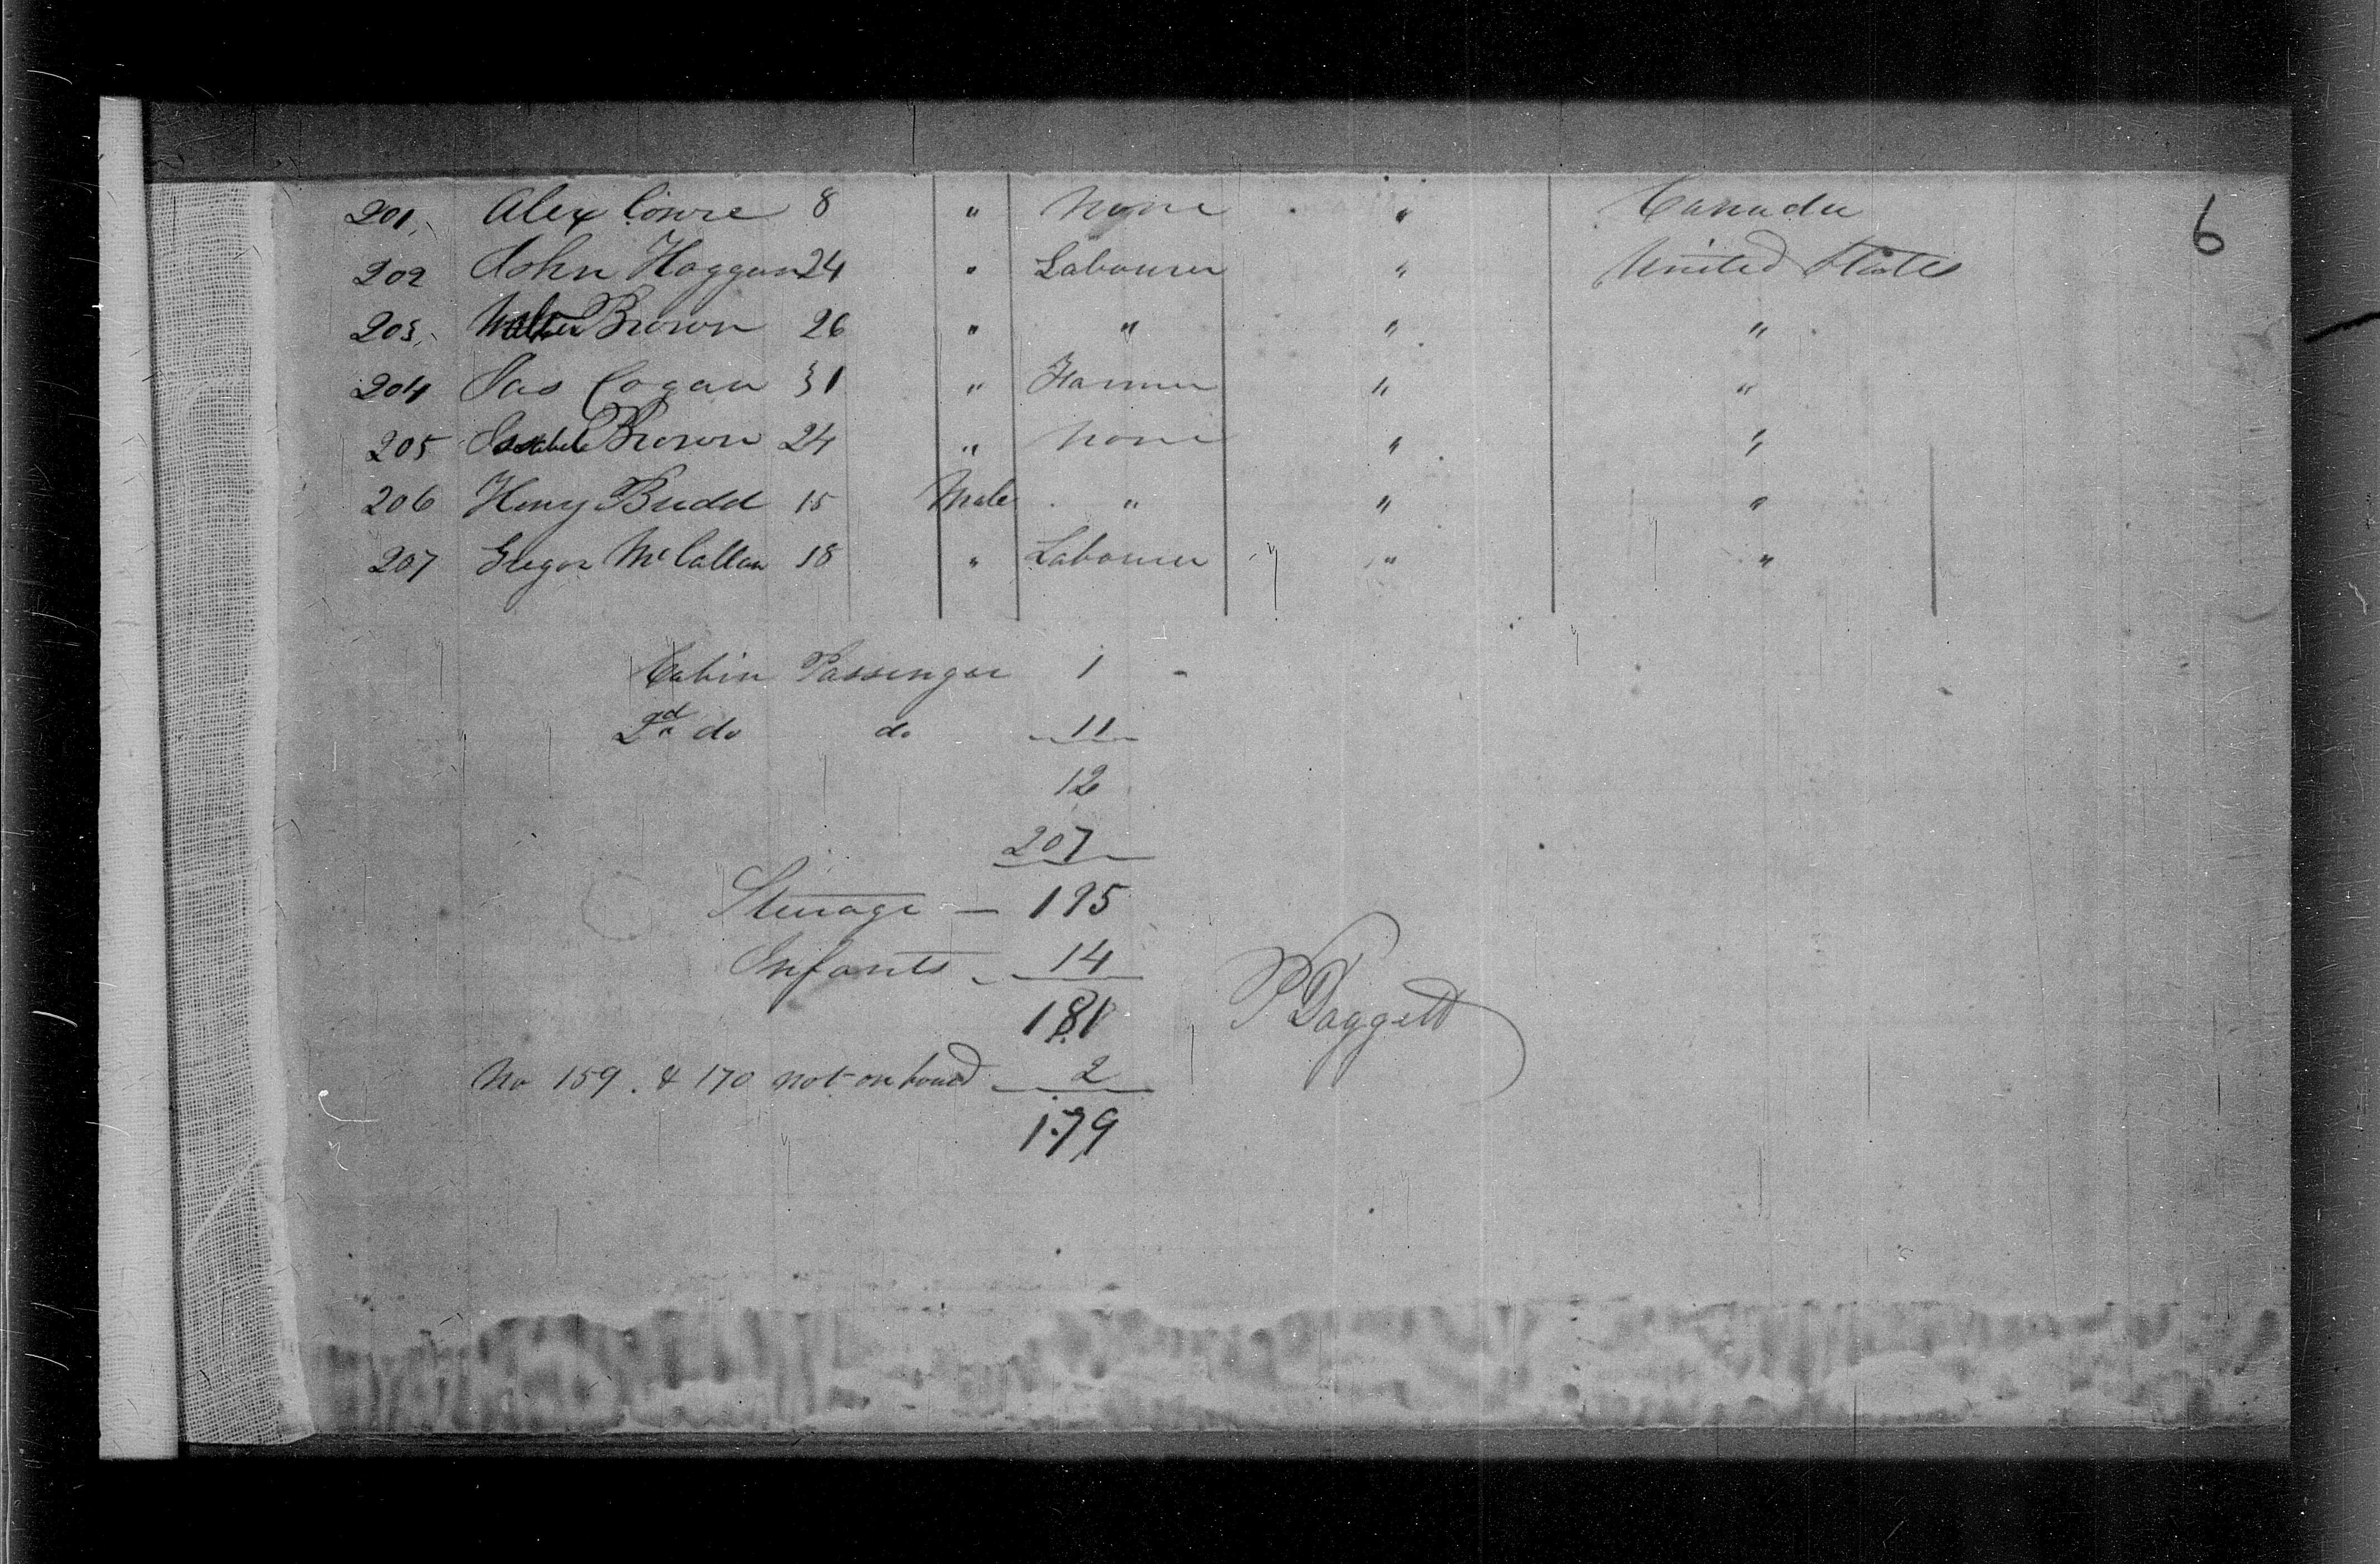 6
201. Alex Cowre 8 " None " Canada
202 John Haggan 24 " Labourer " United States
203. Walter Brown 26 " " " "
204 Jas Cogan 31 " Farmer " "
205 Isabele Brown 24 " None " "
206 Heny Budd 15 Male " " "
207 Gregor McCallan 18 " Labourer " "
Cabin Passenger 1
2nd do do 11
12
207
Steerage — 195
Infants - 14
181
No 159. & 170 not on board 2
179
P Daggett